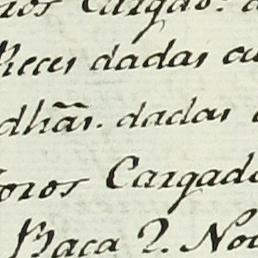 Cargado.
Reces dadas
dhãs. dadas
Toros Cargad
Baca 2. Nov